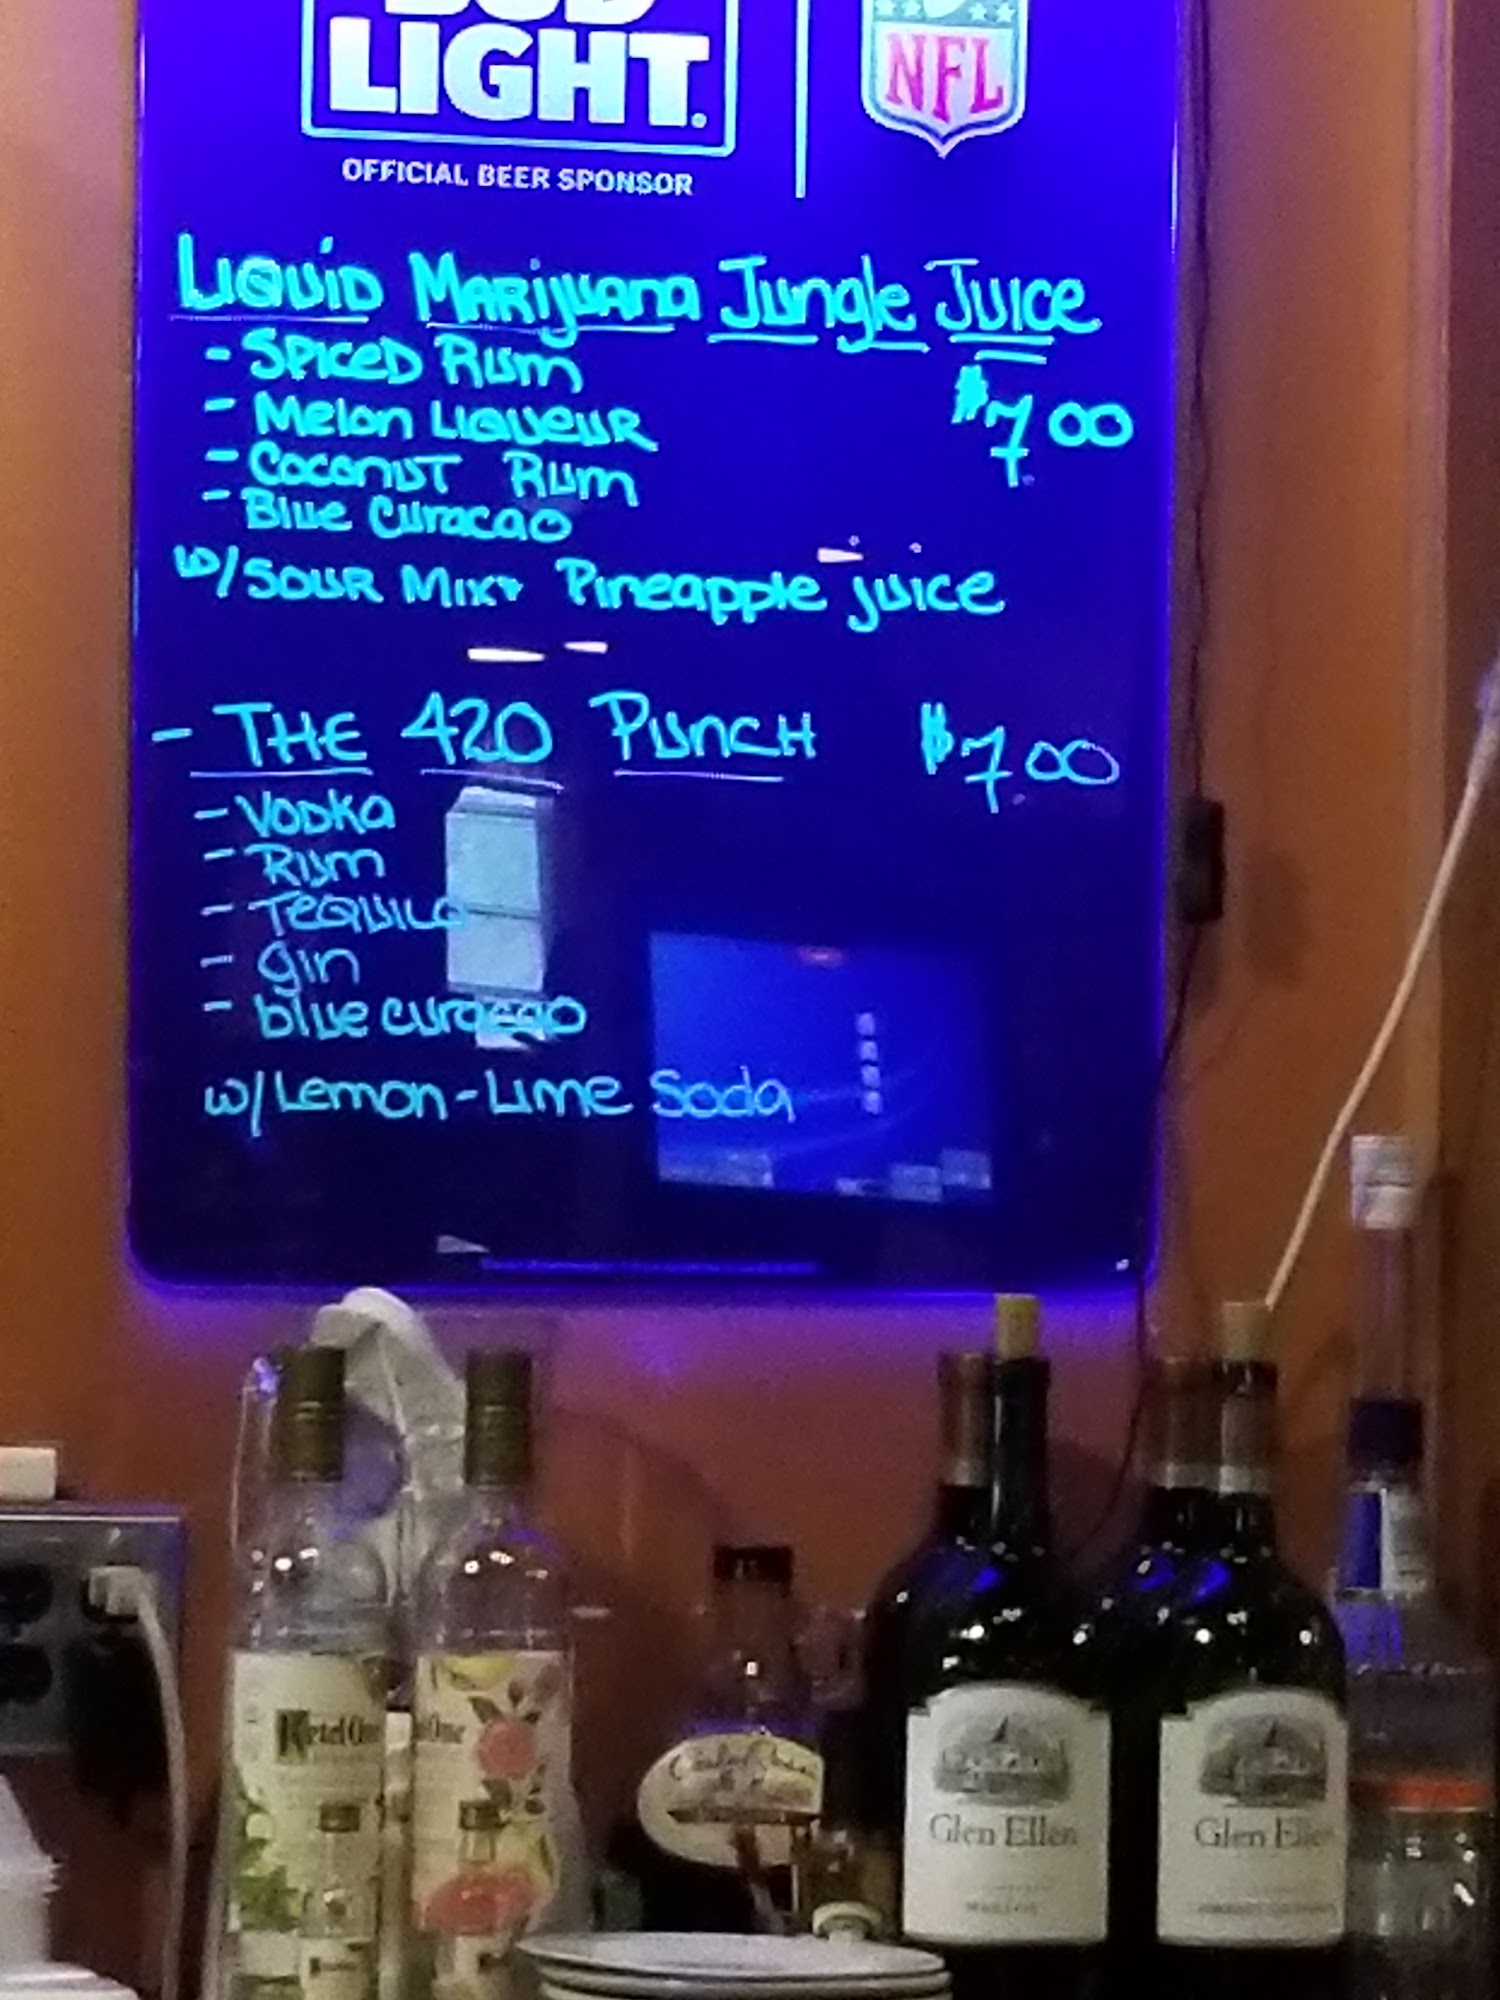 BUD
LIGHT.
OFFICIAL BEER SPONSOR
NFL
Liquid Marijuana Jungle Juice
- Spiced Rum
$7.00
- Melon Liqueur
- Coconut Rum
- Blue Curacao
w/ Sour Mix + Pineapple juice
- THE 420 PUNCH $7.00
- Vodka
- Rum
- Tequila
- gin
- blue curacao
w/ Lemon-Lime Soda
Ketel One
Glen Ellen
MERLOT
Glen Ellen